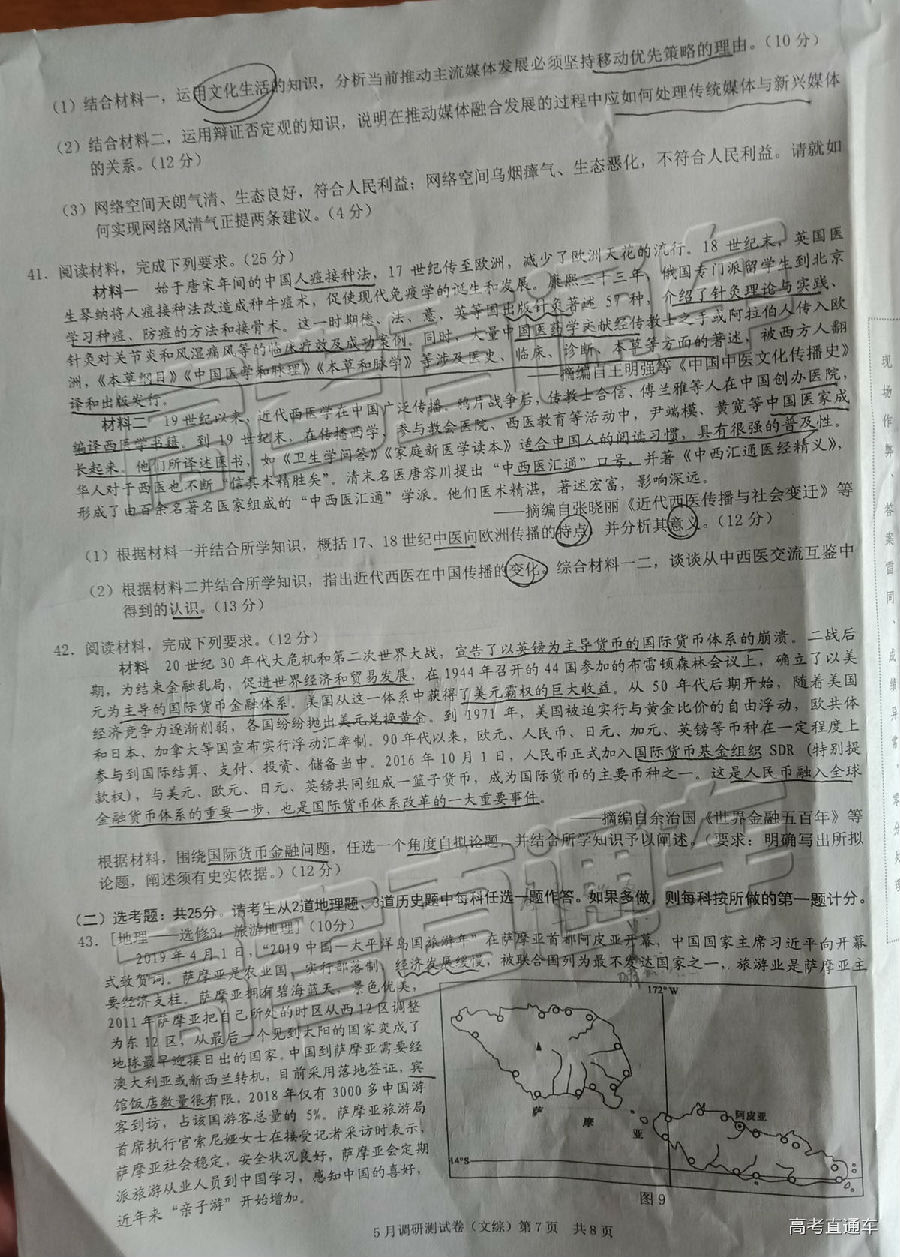 (1) 结合材料一，运用文化生活的知识，分析当前推动主流媒体发展必须坚持移动优先策略的理由。(10分)
(2) 结合材料二，运用辩证否定观的知识，说明在推动媒体融合发展的过程中应如何处理传统媒体与新兴媒体
的关系。(12分)
(3) 网络空间天朗气清、生态良好，符合人民利益；网络空间乌烟瘴气、生态恶化，不符合人民利益。请就如
何实现网络风清气正提两条建议。(4分)
41. 阅读材料，完成下列要求。(25分)
材料一 始于唐宋年间的中国人痘接种法，17 世纪传至欧洲，减少了欧洲天花的流行。18 世纪末，英国医
生琴纳将人痘接种法改造成种牛痘术，促使现代免疫学的诞生和发展。康熙三十三年，俄国专门派留学生到北京
学习种痘、防痘的方法和接骨术。这一时期德、法、意、英等国出版针灸著述 57 种，介绍了针灸理论与实践、
针灸对关节炎和风湿痛风等的临床疗效及成功案例。同时，大量中国医药学文献经传教士之手或阿拉伯人传入欧
洲，《本草纲目》《中国医学和脉理》《本草和脉学》等涉及医史、临床、诊断、本草等方面的著述，被西方人翻
译和出版发行。
——摘编自王明强等《中国中医文化传播史》
材料二 19 世纪以来，近代西医学在中国广泛传播。鸦片战争后，传教士合信、傅兰雅等人在中国创办医院，
编译西医学书籍。到 19 世纪末，在传播西学、参与教会医院、西医教育等活动中，尹端模、黄宽等中国医家成
长起来。他们所译述医书，如《卫生学问答》《家庭新医学读本》适合中国人的阅读习惯，具有很强的普及性。
华人对于西医也不断“信其术精胜矣”。清末名医唐容川提出“中西医汇通”口号，并著《中西汇通医经精义》，
形成了由百余名著名医家组成的“中西医汇通”学派。他们医术精湛，著述宏富，影响深远。
——摘编自张晓丽《近代西医传播与社会变迁》等
(1) 根据材料一并结合所学知识，概括 17、18 世纪中医向欧洲传播的特点，并分析其意义。(12分)
(2) 根据材料二并结合所学知识，指出近代西医在中国传播的变化。综合材料一二，谈谈从中西医交流互鉴中
得到的认识。(13分)
42. 阅读材料，完成下列要求。(12分)
材料 20 世纪 30 年代大危机和第二次世界大战，宣告了以英镑为主导货币的国际货币体系的崩溃。二战后
期，为结束金融乱局，促进世界经济和贸易发展，在 1944 年召开的 44 国参加的布雷顿森林会议上，确立了以美
元为主导的国际货币金融体系。美国从这一体系中获得了美元霸权的巨大收益。从 50 年代后期开始，随着美国
经济竞争力逐渐削弱，各国纷纷抛出美元兑换黄金。到 1971 年，美国被迫实行与黄金比价的自由浮动，欧共体
和日本、加拿大等国宣布实行浮动汇率制。90 年代以来，欧元、人民币、日元、加元、英镑等币种在一定程度上
参与到国际结算、支付、投资、储备当中。2016 年 10 月 1 日，人民币正式加入国际货币基金组织 SDR (特别提
款权)，与美元、欧元、日元、英镑共同组成一篮子货币，成为国际货币的主要币种之一。这是人民币融入全球
金融货币体系的重要一步，也是国际货币体系改革的一大重要事件。
——摘编自余治国《世界金融五百年》等
根据材料，围绕国际货币金融问题，任选一个角度自拟论题，并结合所学知识予以阐述。(要求：明确写出所拟
论题，阐述须有史实依据。)(12分)
(二) 选考题：共25分。请考生从2道地理题、3道历史题中每科任选一题作答。如果多做，则每科按所做的第一题计分。
43. [地理——选修3：旅游地理] (10分)
2019 年 4 月 1 日，“2019 中国—太平洋岛国旅游年”在萨摩亚首都阿皮亚开幕，中国国家主席习近平向开幕
式致贺词。萨摩亚是农业国，实行部落制，经济发展缓慢，被联合国列为最不发达国家之一，旅游业是萨摩亚主
要经济支柱。萨摩亚拥有碧海蓝天，景色优美，
2011 年萨摩亚把自己所处的时区从西 12 区调整
为东 12 区，从最后一个见到太阳的国家变成了
地球最早迎接日出的国家。中国到萨摩亚需要经
澳大利亚或新西兰转机，目前采用落地签证，宾
馆饭店数量很有限。2018 年仅有 3000 多中国游
客到访，占该国游客总量的 5%。萨摩亚旅游局
首席执行官索尼娅女士在接受记者采访时表示，
萨摩亚社会稳定，安全状况良好，萨摩亚会定期
派旅游从业人员到中国学习，感知中国的喜好，
近年来“亲子游”开始增加。
172°W
萨
摩
亚
阿皮亚
14°S
图 9
5月调研测试卷（文综）第7页 共8页
现场作弊、答案雷同、成绩异常，零分处理
高考直通车
高考直通车
高考直通车